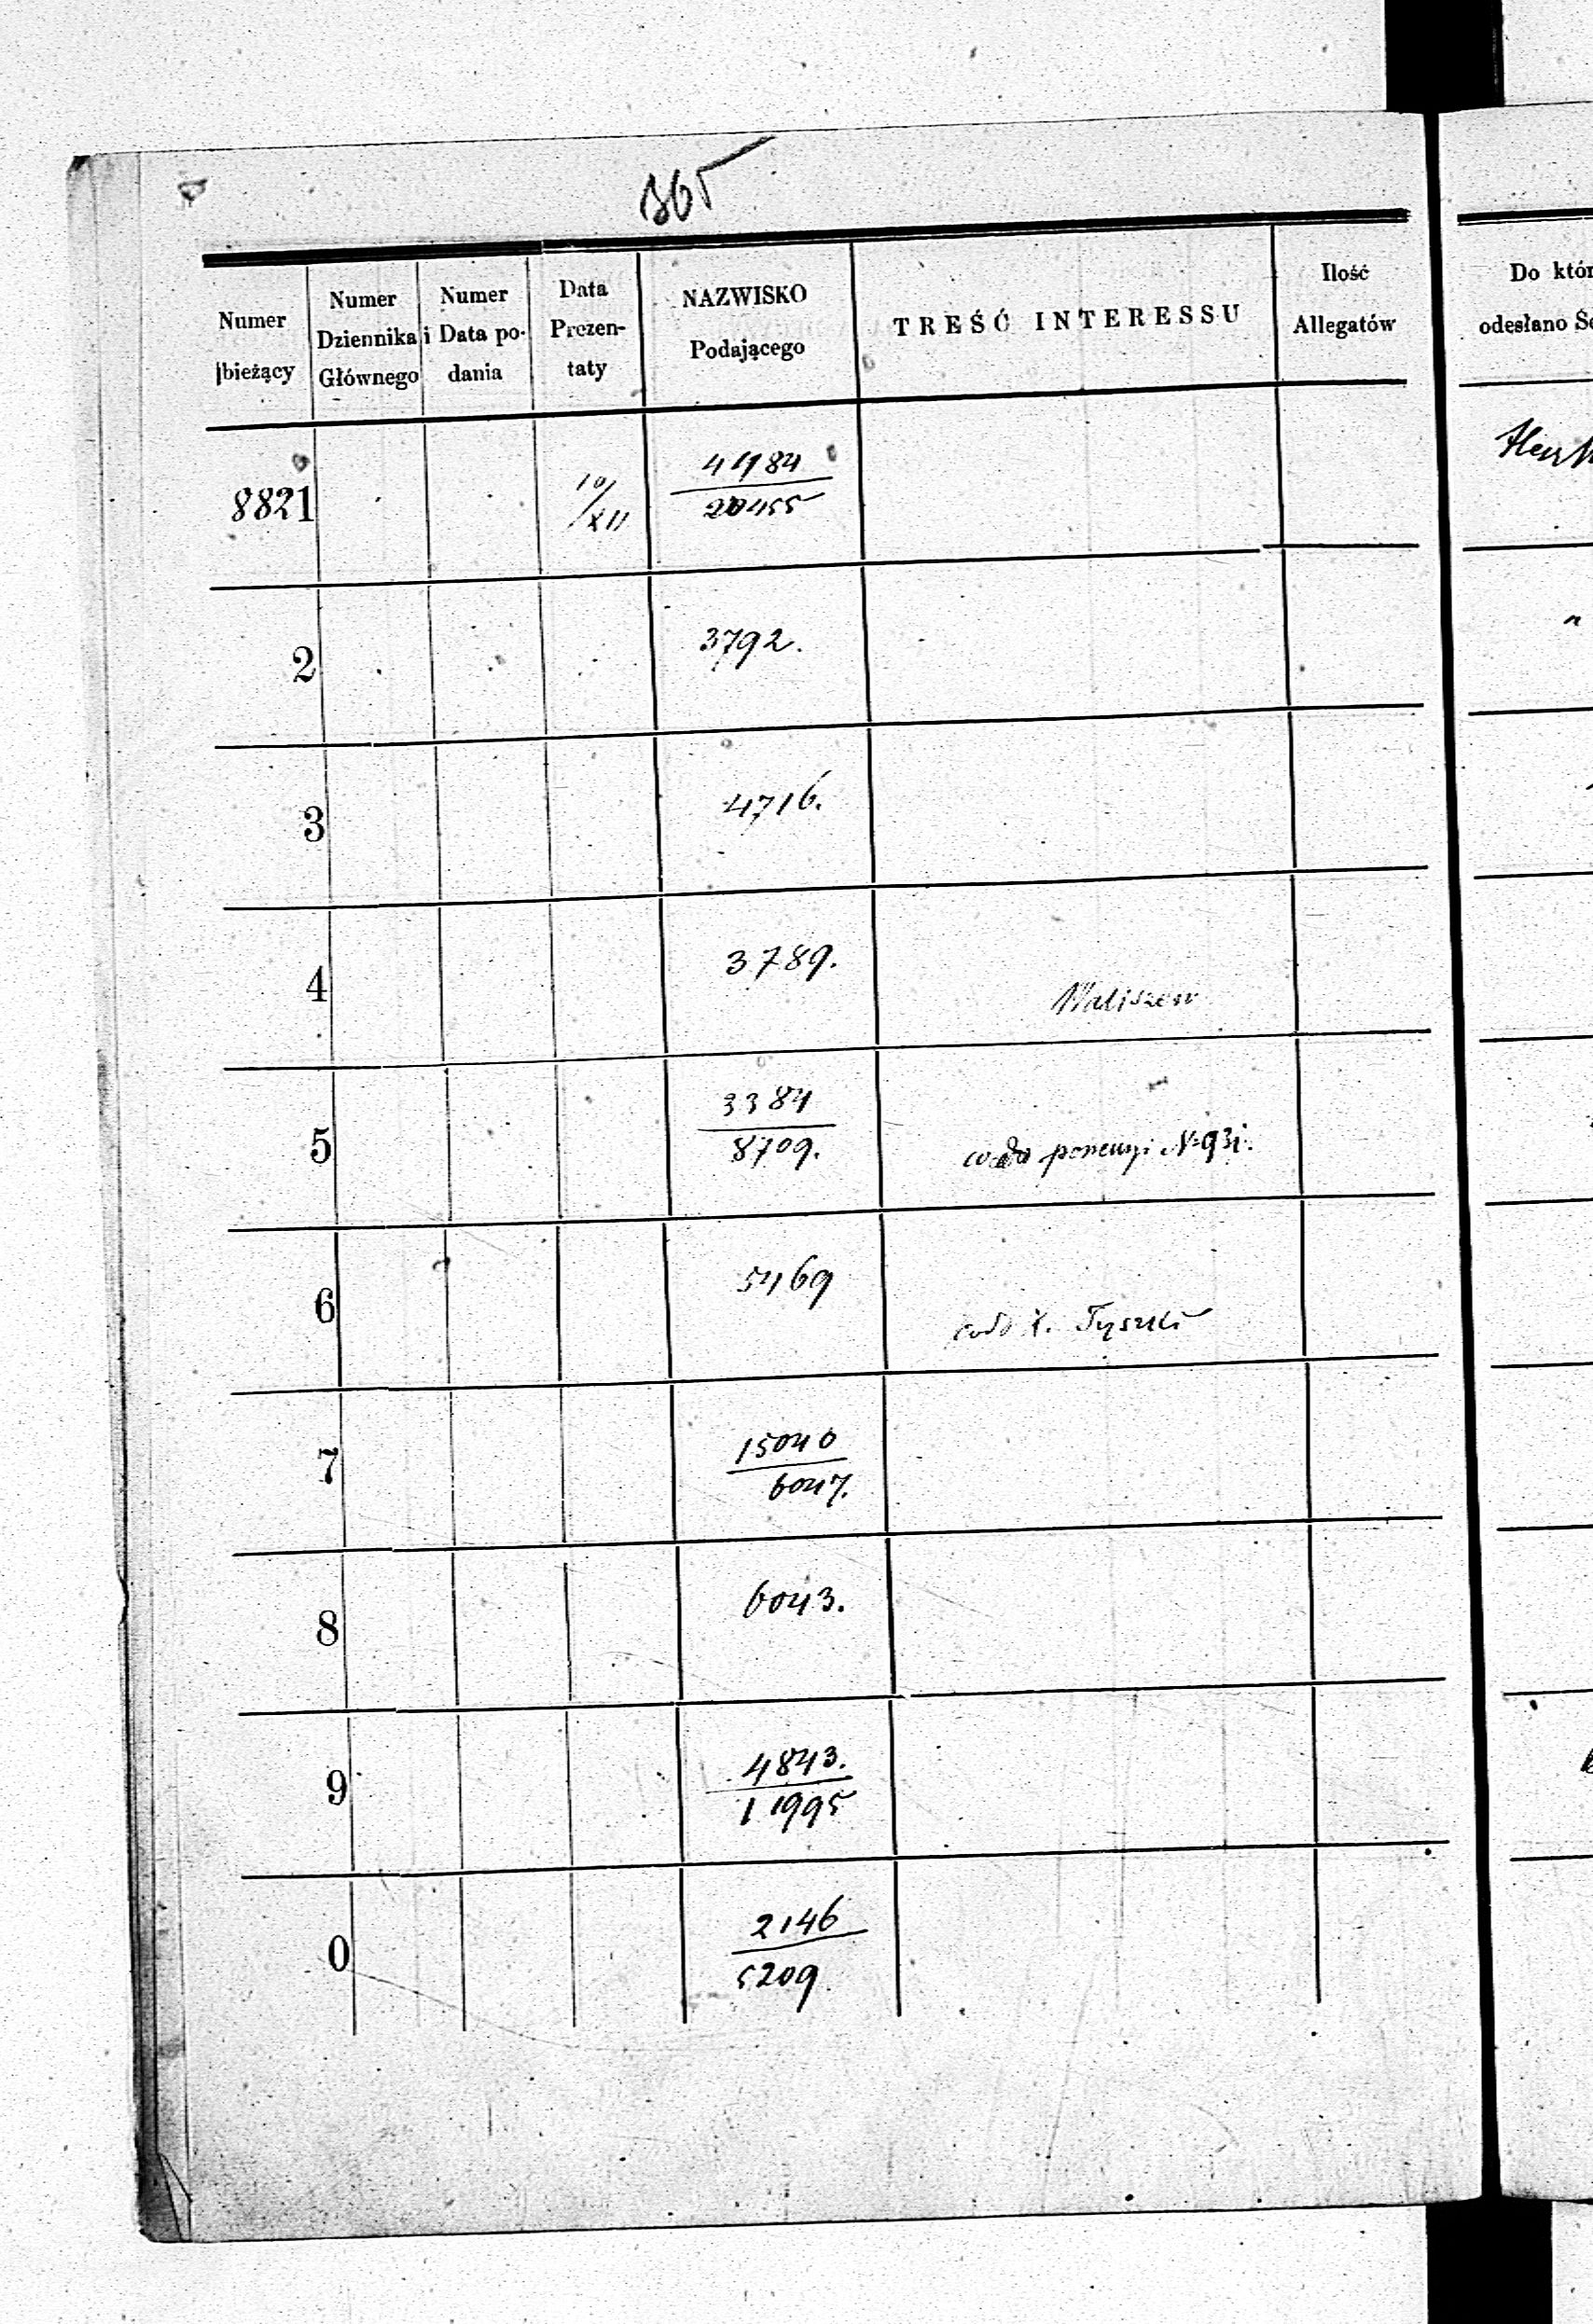 365
Numer bieżący
Numer Dziennika Głównego
Numer i Data podania
Data Prezen-taty
NAZWISKO Podającego
TREŚĆ INTERESSU
Ilość Allegatów
Do któr
odesłano Se
8821
10/XII
4184
20455
2
3792.
3
4716.
4
3789.
Maliszew
5
3384
8709.
codo N 93i.
6
5469
codo X. Tyszki
7
15040
6047.
8
6043.
9
4843.
11995
0
2146
5209